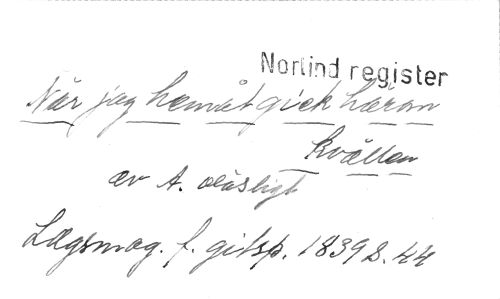 Norlind register
När jag hemåt gick häron
kvällen
av A. oläsligt
Lægsmag. f. gitsp. 1839 S. 44